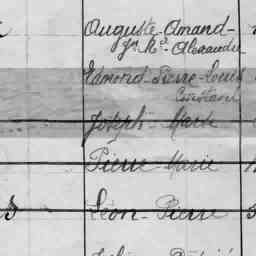 Auguste-Amand-
Jn Me Alexandre
Edmond-Pierre-Louis
Constant
Joseph-Marie
Pierre-Marie
Léon-Pierre